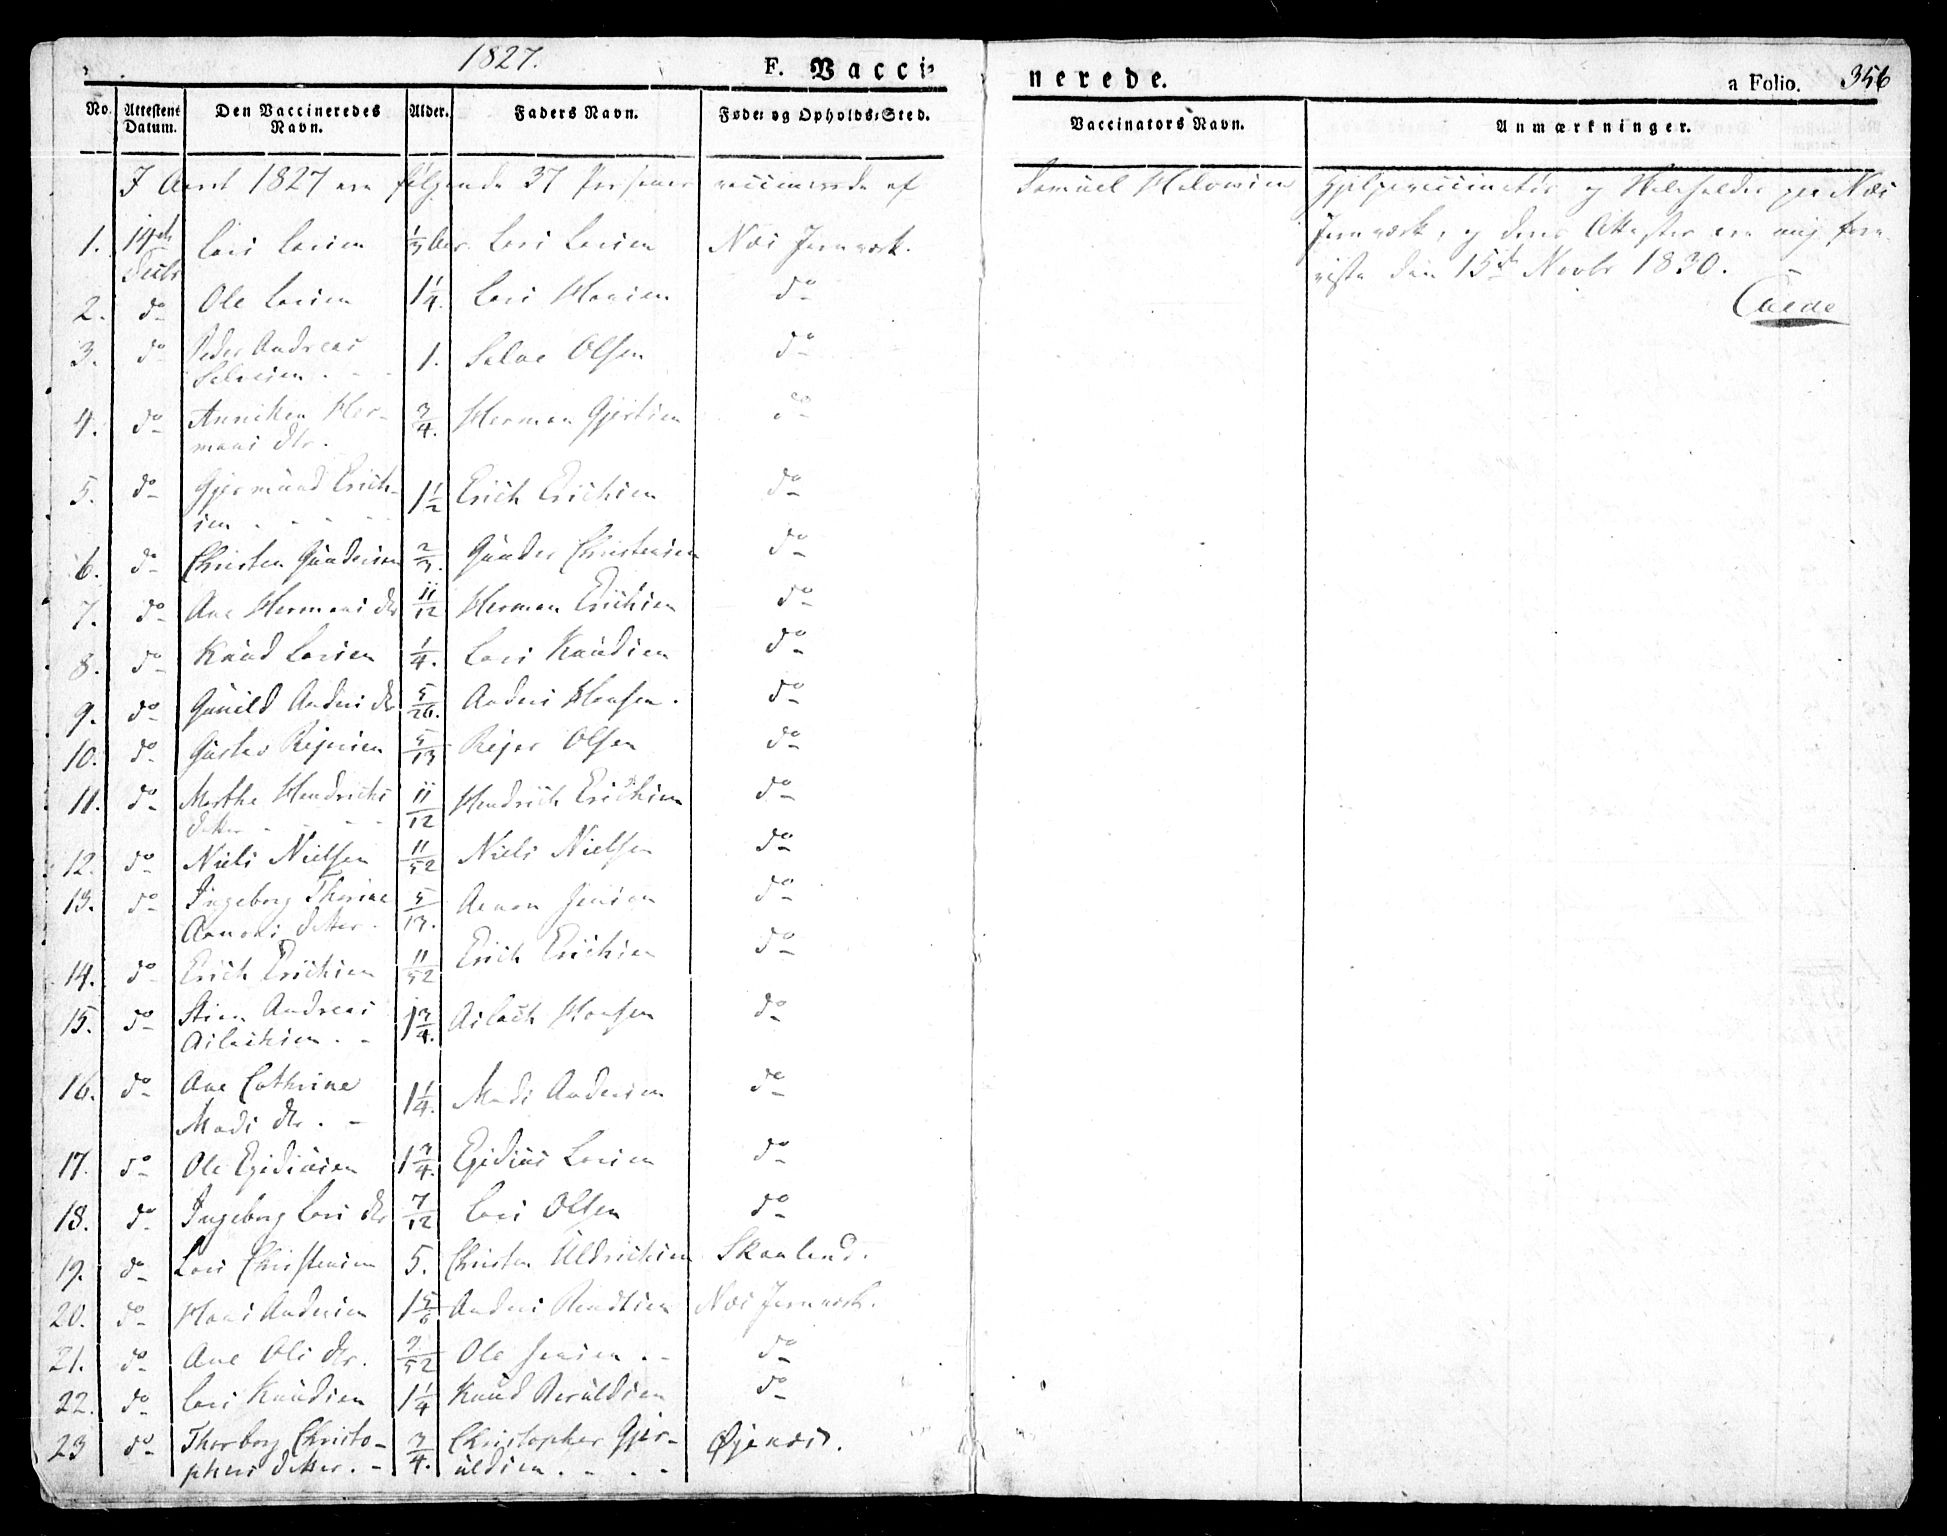 1827.
F. Vacci-
nerede.
a Folio. 356
No. Attestens Datum. Den Vaccineredes Navn. Alder. Faders Navn. Føde- og Opholds-Sted. Vaccinators Navn. Anmærkninger.
I Aaret 1827 ere følgende 37 Personer vaccinerede af Samuel Hjelpevaccinatør og ved Næs
Jernværk, og dens Attester ere mig fore-
viste den 15de Novbr 1830.
1. 14de Decbr Lars Larsen 1/3 Aar. Lars Larsen Næs Jernværk.
2. do Ole Larsen 1 1/4. Lars Hansen do
3. do Peder Andreas
Salvesen . - - 1. Salve Olsen do
4. do Anniken Her-
mans dtr. 3/4. Herman Gjertsen do
5. do Gjermund Erich-
sen . - - - 1 1/2 Erich Erichsen do
6. do Christen Gundersen 2/3. Gunder Christensen do
7. do Ane Hermans dtr 11/12 Herman Erichsen do
8. do Knud Larsen 1/4. Lars Knudsen do
9. do Gunild Anders dtr 5/26. Anders Hansen. do
10. do Gustav Reiersen 5/13 Reier Olsen do
11. do Marthe Hendrichs
datter - - - 11/12 Hendrich Erichsen do
12. do Niels Nielsen 11/52 Niels Nielsen do
13. do Ingeborg Thorine
Aanons datter. 5/13. Aanon Jensen do
14. do Erich Erichsen 11/52 Erich Erichsen do
15. do Stian Andreas
Ailachsen . - 1 3/4. Ailach Hansen do
16. do Ane Cathrine
Mads dtr. - 1 1/4. Mads Andersen do
17. do Ole Egidiusen 1 3/4. Egidius Larsen do
18. do Ingeborg Lars dtr 7/12 Lars Olsen do
19. do Lars Christensen 5. Christen Uldrichsen Skaaland.
20. do Hans Andersen 1 5/6 Anders Næs Jernværk.
21. do Ane Ols dtr. 9/52 Ole Jensen . - do
22. do Lars Knudsen 1 1/4 Knud do
23 do Thorborg Christo-
phers datter. - 3/4. Christopher Gjer-
uldsen . - - - Øjenæs.